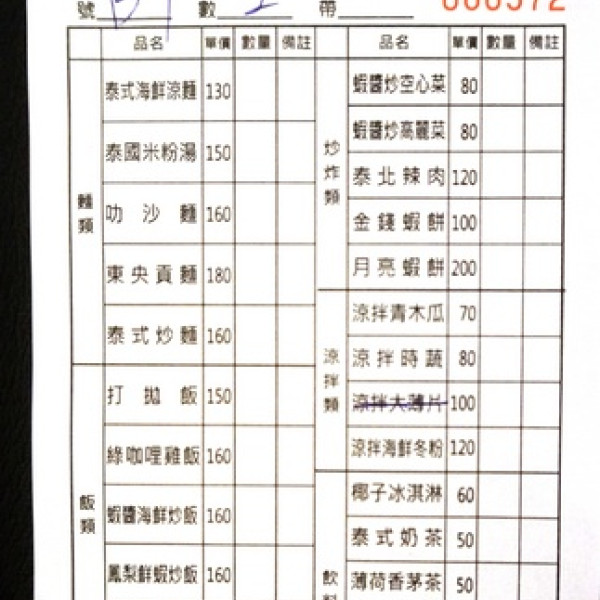 號 數 帶
品名 單價 數量 備註
麵類
泰式海鮮涼麵 130
泰國米粉湯 150
叻沙麵 160
東央貢麵 180
泰式炒麵 160
飯類
打拋飯 150
綠咖哩雞飯 160
蝦醬海鮮炒飯 160
鳳梨鮮蝦炒飯 160
品名 單價 數量 備註
炒炸類
蝦醬炒空心菜 80
蝦醬炒高麗菜 80
泰北辣肉 120
金錢蝦餅 100
月亮蝦餅 200
涼拌類
涼拌青木瓜 70
涼拌時蔬 80
涼拌大薄片 100
涼拌海鮮冬粉 120
飲料
椰子冰淇淋 60
泰式奶茶 50
薄荷香茅茶 50